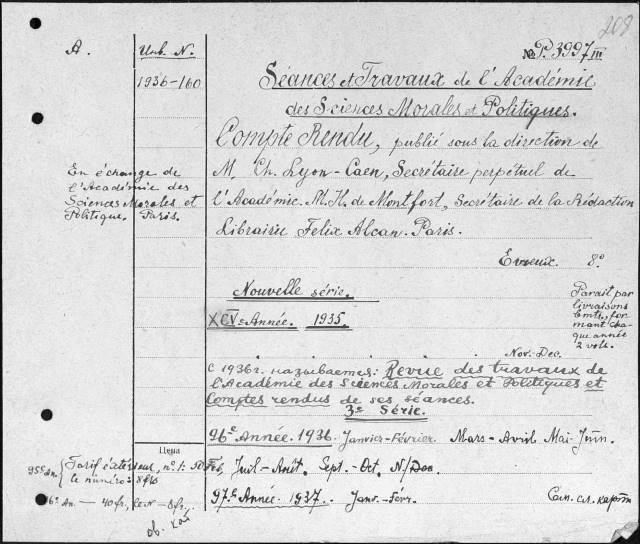 208
A.
Inv. N.
№ P. 3997 III
1936-160
Séances et Travaux de l'Académie
des Sciences Morales et Politiques.
Compte Rendu, publié sous la direction de
M. Ch. Lyon-Caen, Secrétaire perpétuel de
l'Académie. M. H. de Montfort, Secrétaire de la Rédaction
Librairie Felix Alcan. Paris.
En échange de
l'Académie des
Sciences Morales et
Politique, Paris.
Evreux. 8°
Nouvelle série.
XCVe Année. 1935.
Parait par
livraisons
bmtr., for
mant cha-
que année
2 vols.
Nov.-Dec.
С 1936 г. называемся: Revue des travaux de
l'Académie des Sciences Morales et Politiques et
Comptes rendus de ses séances.
3e Série.
96e Année. 1936. Janvier-Février. Mars-Avril Mai-Juin.
Цена
95e an. Tarif extér. n°. 1: 50 Feb, Juil-Août. Sept.-Oct. N/Dec.
le numéro 8 fr.
96e An. - 40 fr., le N - 8 fr.
97e Année. 1937. Janv.-Févr.
См. сл. карт